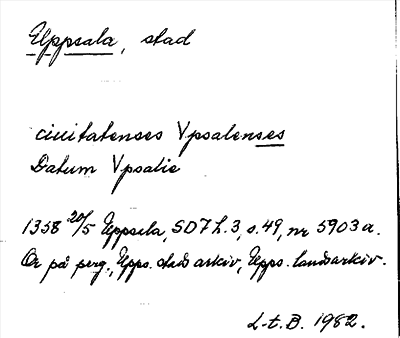 Uppsala, stad
ciuitatenses Vpsalenses
Datum Vpsalie
1358 20/5 Uppsala, SD 7 h. 3, s. 49, nr 5903 a.
Or på perg., Upps. stads arkiv, Upps. landsarkiv.
L-t. B. 1982.